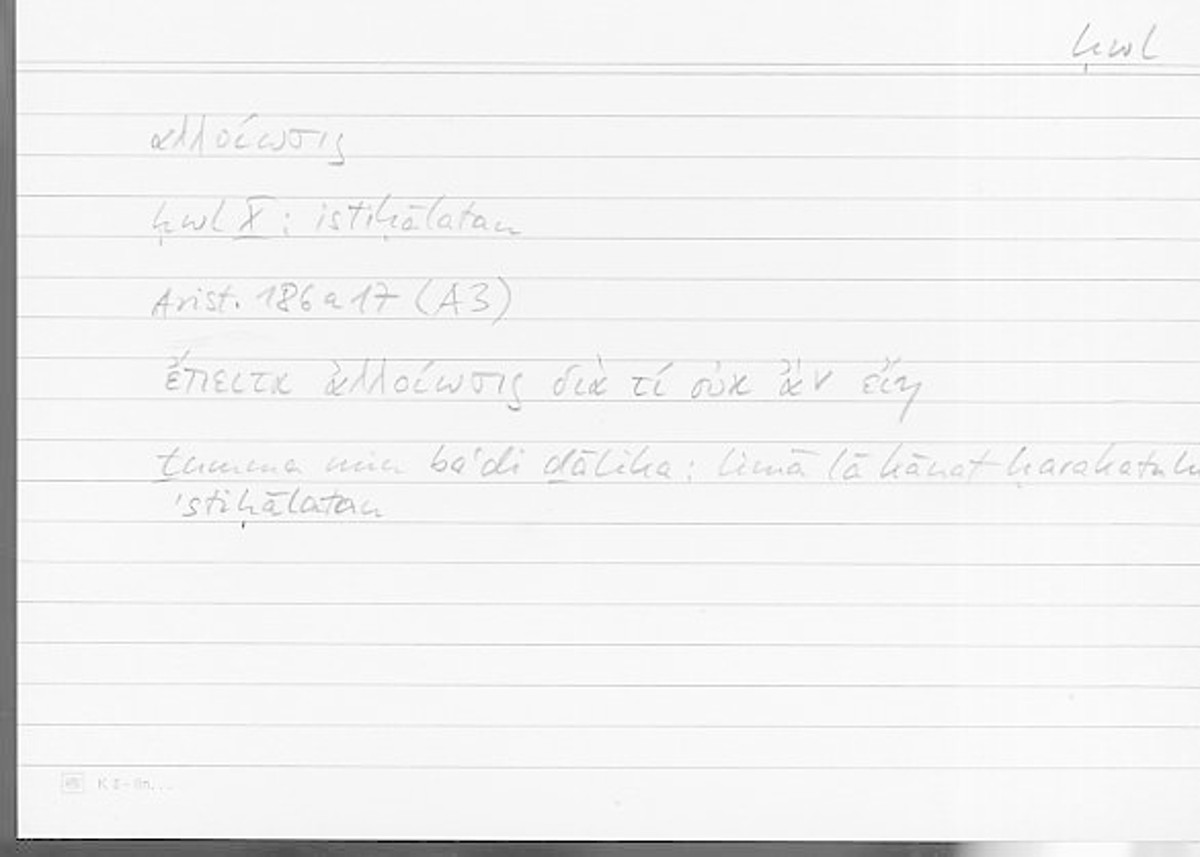 ḥwl
ἀλλοίωσις
ḥwl X: istiḥālatan
Arist. 186 a 17 (A3)
ἔπειτα ἀλλοίωσις διὰ τί οὐκ ἂν εἴη
ṯumma min baʿdi ḏālika: limā lā kānat
ʾstiḥālatan